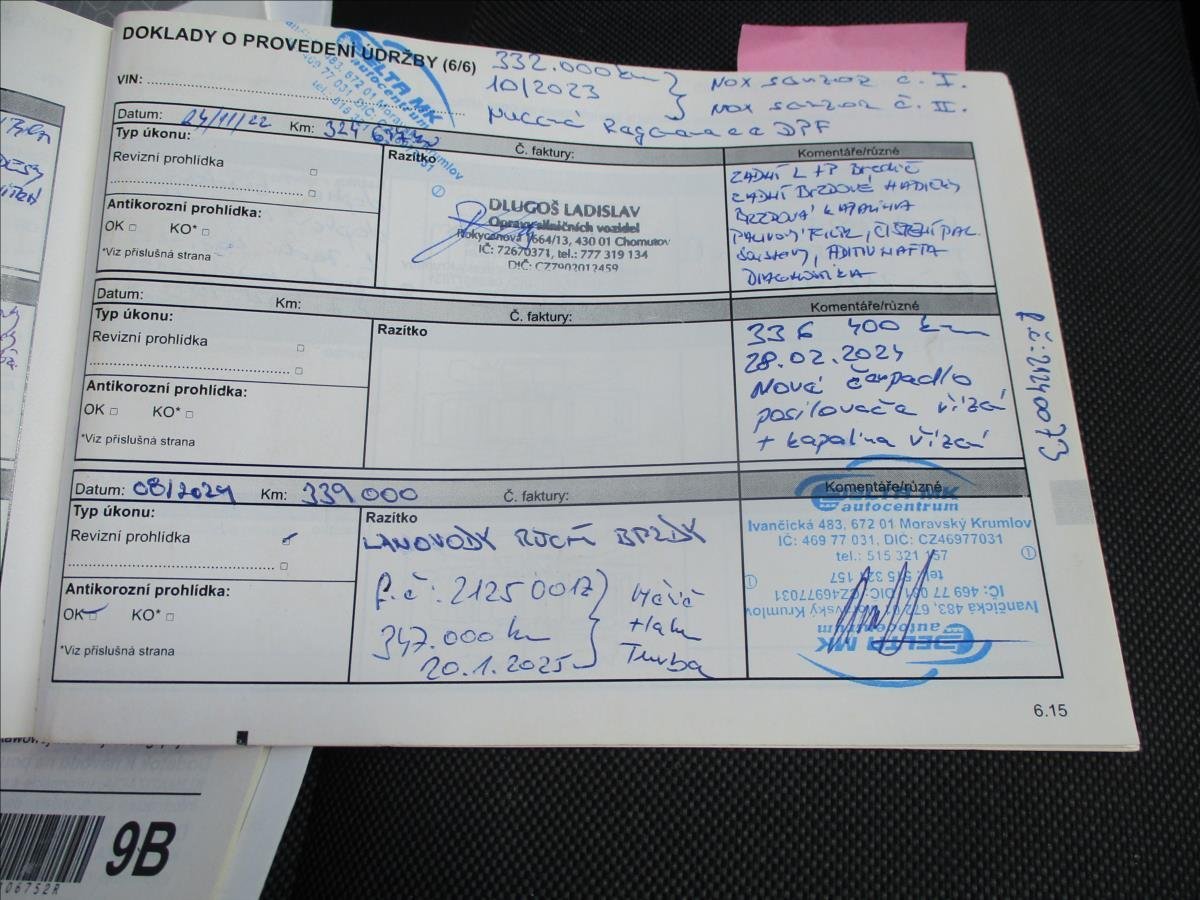 DOKLADY O PROVEDENÍ ÚDRŽBY (6/6)
VIN:
332.000 km
10/2023
NOX senzor č. I.
NOX senzor č. II.
DPF
DELTA MK
autocentrum
Datum: 24/11/22 Km: Č. faktury:
Typ úkonu:
Revizní prohlídka
Antikorozní prohlídka:
OK KO*
*Viz příslušná strana
Razítko
DLUGOŠ LADISLAV
Opravy silničních vozidel
Rokycanova 1664/13, 430 01 Chomutov
IČ: 72670371, tel.: 777 319 134
DIČ: CZ7902012459
Komentáře/různé
ZADNÍ L + P
ZADNÍ BRZDOVÉ HADIČKY
BRZDOVÁ KAPALINA
PALIVOVÝ FILTR, ČIŠTĚNÍ PAL.
SOUSTAVY, ADITIV NAFTA
DIAGNOSTIKA
Datum: Km: Č. faktury:
Typ úkonu:
Revizní prohlídka
Antikorozní prohlídka:
OK KO*
*Viz příslušná strana
Razítko
Komentáře/různé
336 400 km
28.02.2024
Nová čerpadlo
posilovača řízení
+ kapalina řízení
f.č.: 21240073
Datum: 08/2024 Km: 339 000 Č. faktury:
Typ úkonu:
Revizní prohlídka
Antikorozní prohlídka:
OK KO*
*Viz příslušná strana
Razítko
LANOVODY RUČNÍ BRZDY
f.č.: 21250017
347.000 km
20.1.2025
Turba
Komentáře/různé
DELTA MK
autocentrum
Ivančická 483, 672 01 Moravský Krumlov
IČ: 469 77 031, DIČ: CZ46977031
tel.: 515 321 157
tel.: 515 321 157
IČ: 469 77 031, DIČ: CZ46977031
Ivančická 483, 672 01 Moravský Krumlov
autocentrum
DELTA MK
6.15
9B